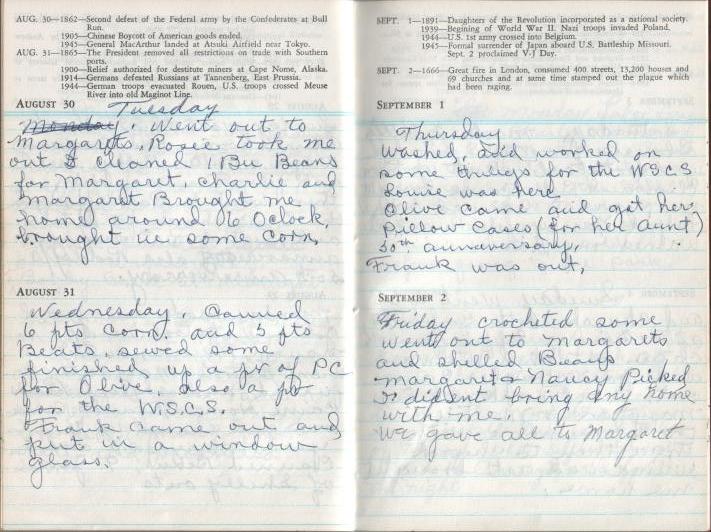 AUG. 30—1862—Second defeat of the Federal army by the Confederates at Bull
Run.
1905—Chinese Boycott of American goods ended.
1945—General MacArthur landed at Atsuki Airfield near Tokyo.
AUG. 31—1865—The President removed all restrictions on trade with Southern
ports.
1900—Relief authorized for destitute miners at Cape Nome, Alaska.
1914—Germans defeated Russians at Tannenberg, East Prussia.
1944—German troops evacuated Rouen, U.S. troops crossed Meuse
River into old Maginot Line.
AUGUST 30
Tuesday
Monday, went out to
Margarets, Rosie took me
out I cleaned 1 Bu Beans
for Margaret, Charlie and
Margaret Brought me
home around 6 Oclock,
brought in some corn,
AUGUST 31
Wednesday, Canned
6 pts corn. and 5 pts
Beats, sewed some
finished up a pr of PC
for Olive, also a pr
for the W.S.C.S.
Frank came out and
put in a window
glass.
SEPT. 1—1891—Daughters of the Revolution incorporated as a national society.
1939—Begining of World War II. Nazi troops invaded Poland.
1944—U.S. 1st army crossed into Belgium.
1945—Formal surrender of Japan aboard U.S. Battleship Missouri.
Sept. 2 proclaimed V-J Day.
SEPT. 2—1666—Great fire in London, consumed 400 streets, 13,200 houses and
69 churches and at same time stamped out the plague which
had been raging.
SEPTEMBER 1
Thursday
Washed, and worked on
some things for the WSCS
Louise was here
Olive came and got her
Pillow Cases (for her Aunt)
50th anniversary,
Frank was out,
SEPTEMBER 2
Friday crocheted some
went out to Margarets
and shelled Beans
Margaret & Nancy Picked
I dident bring any home
with me.
We gave all to Margaret